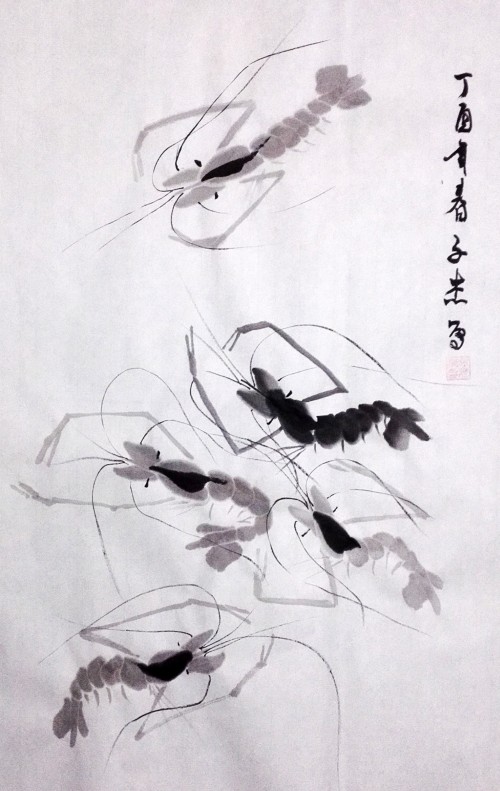 丁酉年春子杰写